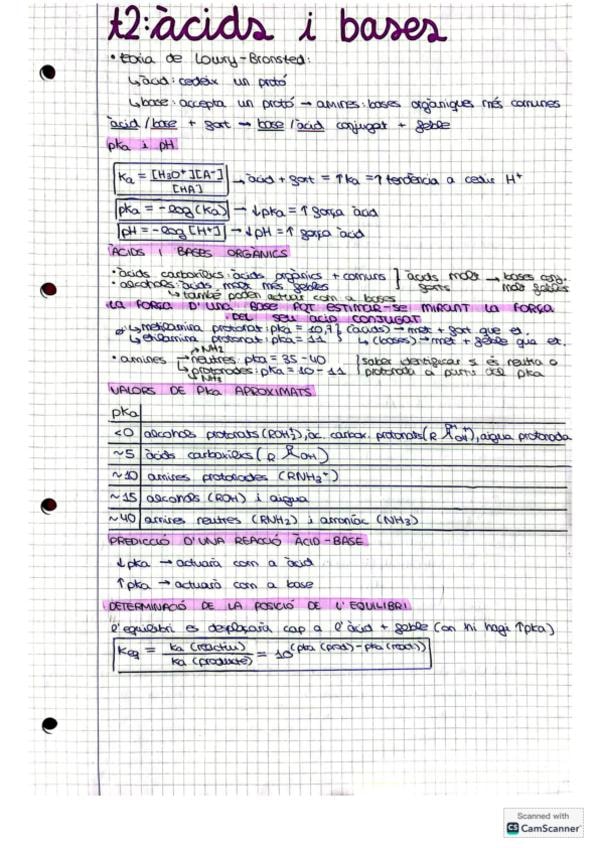 t2: àcids i bases
• teoria de Lowry-Bronsted:
↳ àcid: cedeix un protó
↳ base: accepta un protó → amines: bases orgàniques més comunes
àcid/base + fort → base/àcid conjugat + feble
pka i pH
Ka = [H3O+][A-] / [HA] → àcid + fort = ↑Ka = ↑ tendència a cedir H+
pka = -log(Ka) → ↓pka = ↑ força àcid
pH = -log[H+] → ↓pH = ↑ força àcid
ÀCIDS I BASES ORGÀNICS
• àcids carboxílics: àcids orgànics + comuns } àcids molt forts → bases conj. molt febles
• alcohols: àcids molt més febles
↳ també poden actuar com a bases
LA FORÇA D'UNA BASE POT ESTIMAR-SE MIRANT LA FORÇA
DEL SEU ÀCID CONJUGAT
↳ metilamina protonat: pka = 10,7 } (àcids) → met + fort que et.
↳ etilamina protonat: pka = 11 } ↳ (bases) → met + feble que et.
NH2
• amines → neutres: pka = 35-40 } saber identificar si és neutra o
↳ protonades: pka = 10-11 } protonada a partir del pka
NH3
VALORS DE PKa APROXIMATS
pka
<0 alcohols protonats (ROH2+), àc. carbox. protonats (R OH), aigua protonada
~5 àcids carboxílics (R OH)
~10 amines protonades (RNH3+)
~15 alcohols (ROH) i aigua
~40 amines neutres (RNH2) i amoníac (NH3)
PREDICCIÓ D'UNA REACCIÓ ÀCID-BASE
↓pka → actuarà com a àcid
↑pka → actuarà com a base
DETERMINACIÓ DE LA POSICIÓ DE L'EQUILIBRI
l'equilibri es desplaçarà cap a l'àcid + feble (on hi hagi ↑pka)
Keq = Ka (reactiu) / Ka (producte) = 10^(pka (prod) - pka (react))
Scanned with
CS CamScanner